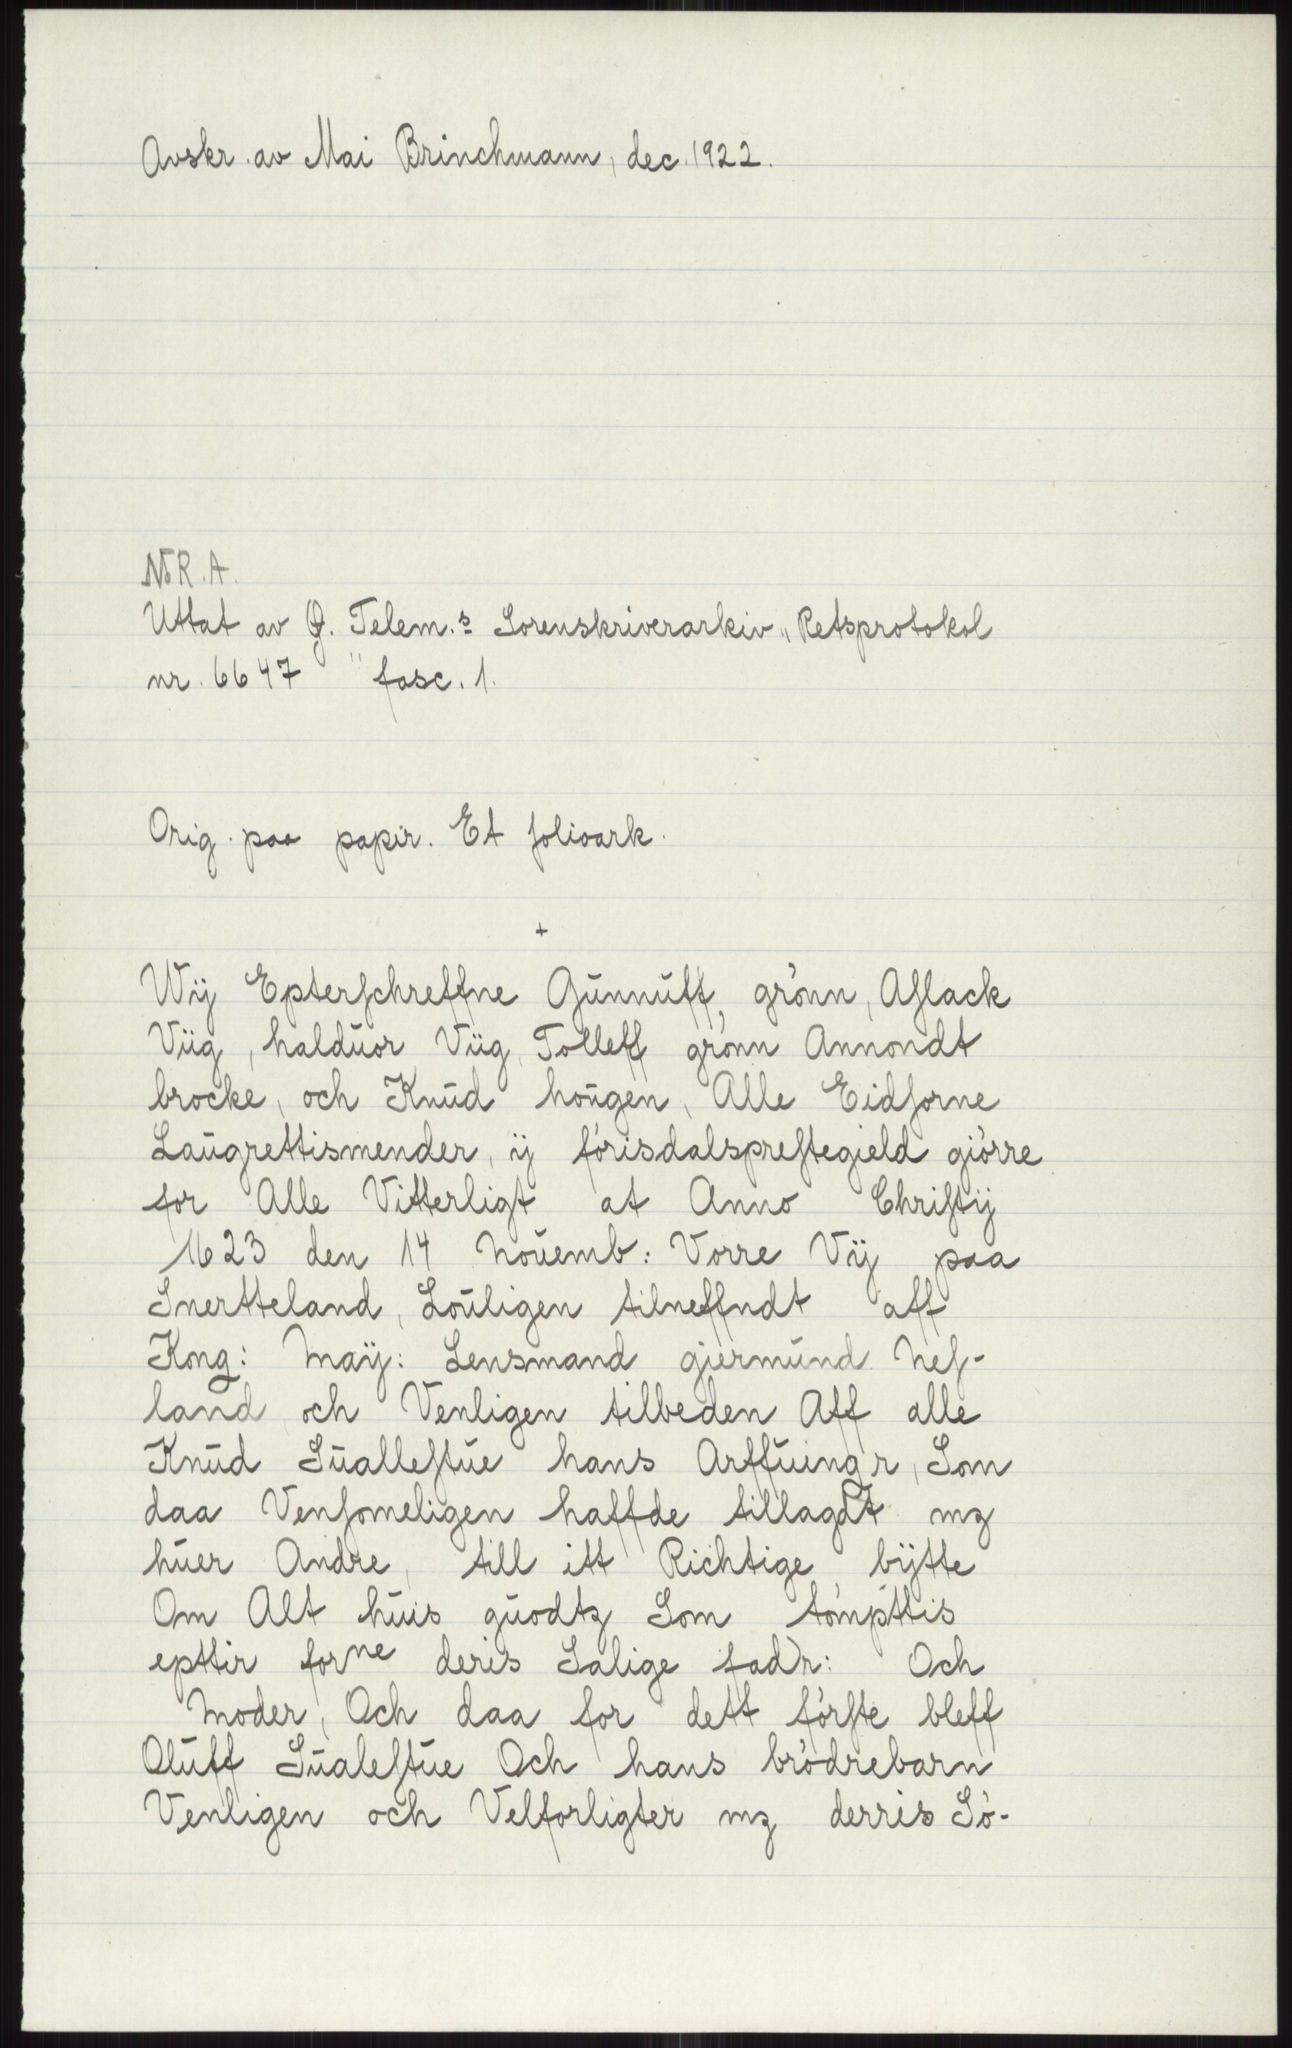 Avskr. av Mai Brinchmann, dec. 1922.
N.R.A.
Uttat av Ø. Telem.s Sorenskriverarkiv „ Retsprotokol
nr. 6647 " fasc. 1.
Orig. paa papir. Et folioark.
+
Wij Epterschreffne Gunnuff grönn, Aslack
Viig, halduor Viig, Tolleff grönn Annondt
brocke, och Knud hougen, Alle Eidsorne
Laugrettismender, ij förisdalsprestegield giörre
for Alle Vitterligt at Anno Christij
1623 den 14 Nouemb: Vorre Vij paa
Snertteland, Louligen tilneffndt aff
Kong: Maij: Lensmand giermund Nes-
land och Venligen tilbeden Aff alle
Knud Sualestue hans Arffuing'r, Som
daa Vensomeligen haffde tillagdt mz
huer Andre, till itt Richtige bÿtte
Om Alt huis guodtz Som tömpttis
epttir forne deris Salige fad)r: Och
Moder, Och daa for dett förste bleff
Oluff Sualestue Och hans brödrebarn
Venligen och Velforligter mz derris Sö-